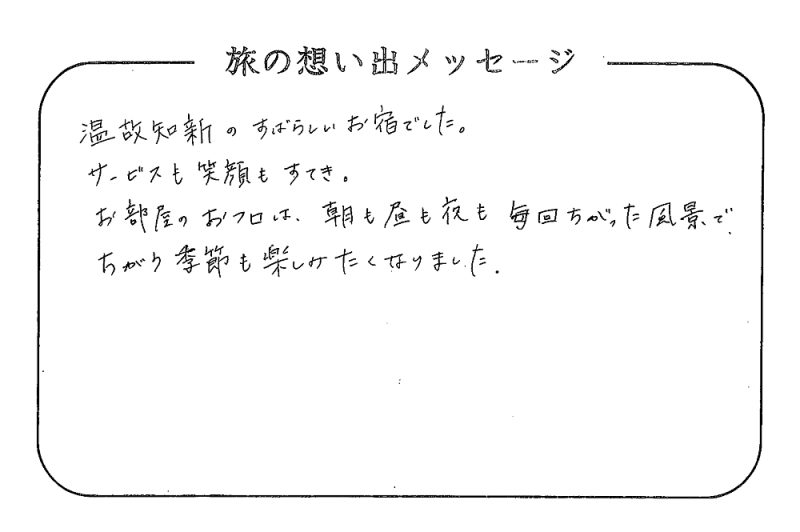 旅の想い出メッセージ
温故知新のすばらしいお宿でした。
サービスも笑顔もすてき。
お部屋のおフロは、朝も昼も夜も毎回ちがった風景で
ちがう季節も楽しみたくなりました.